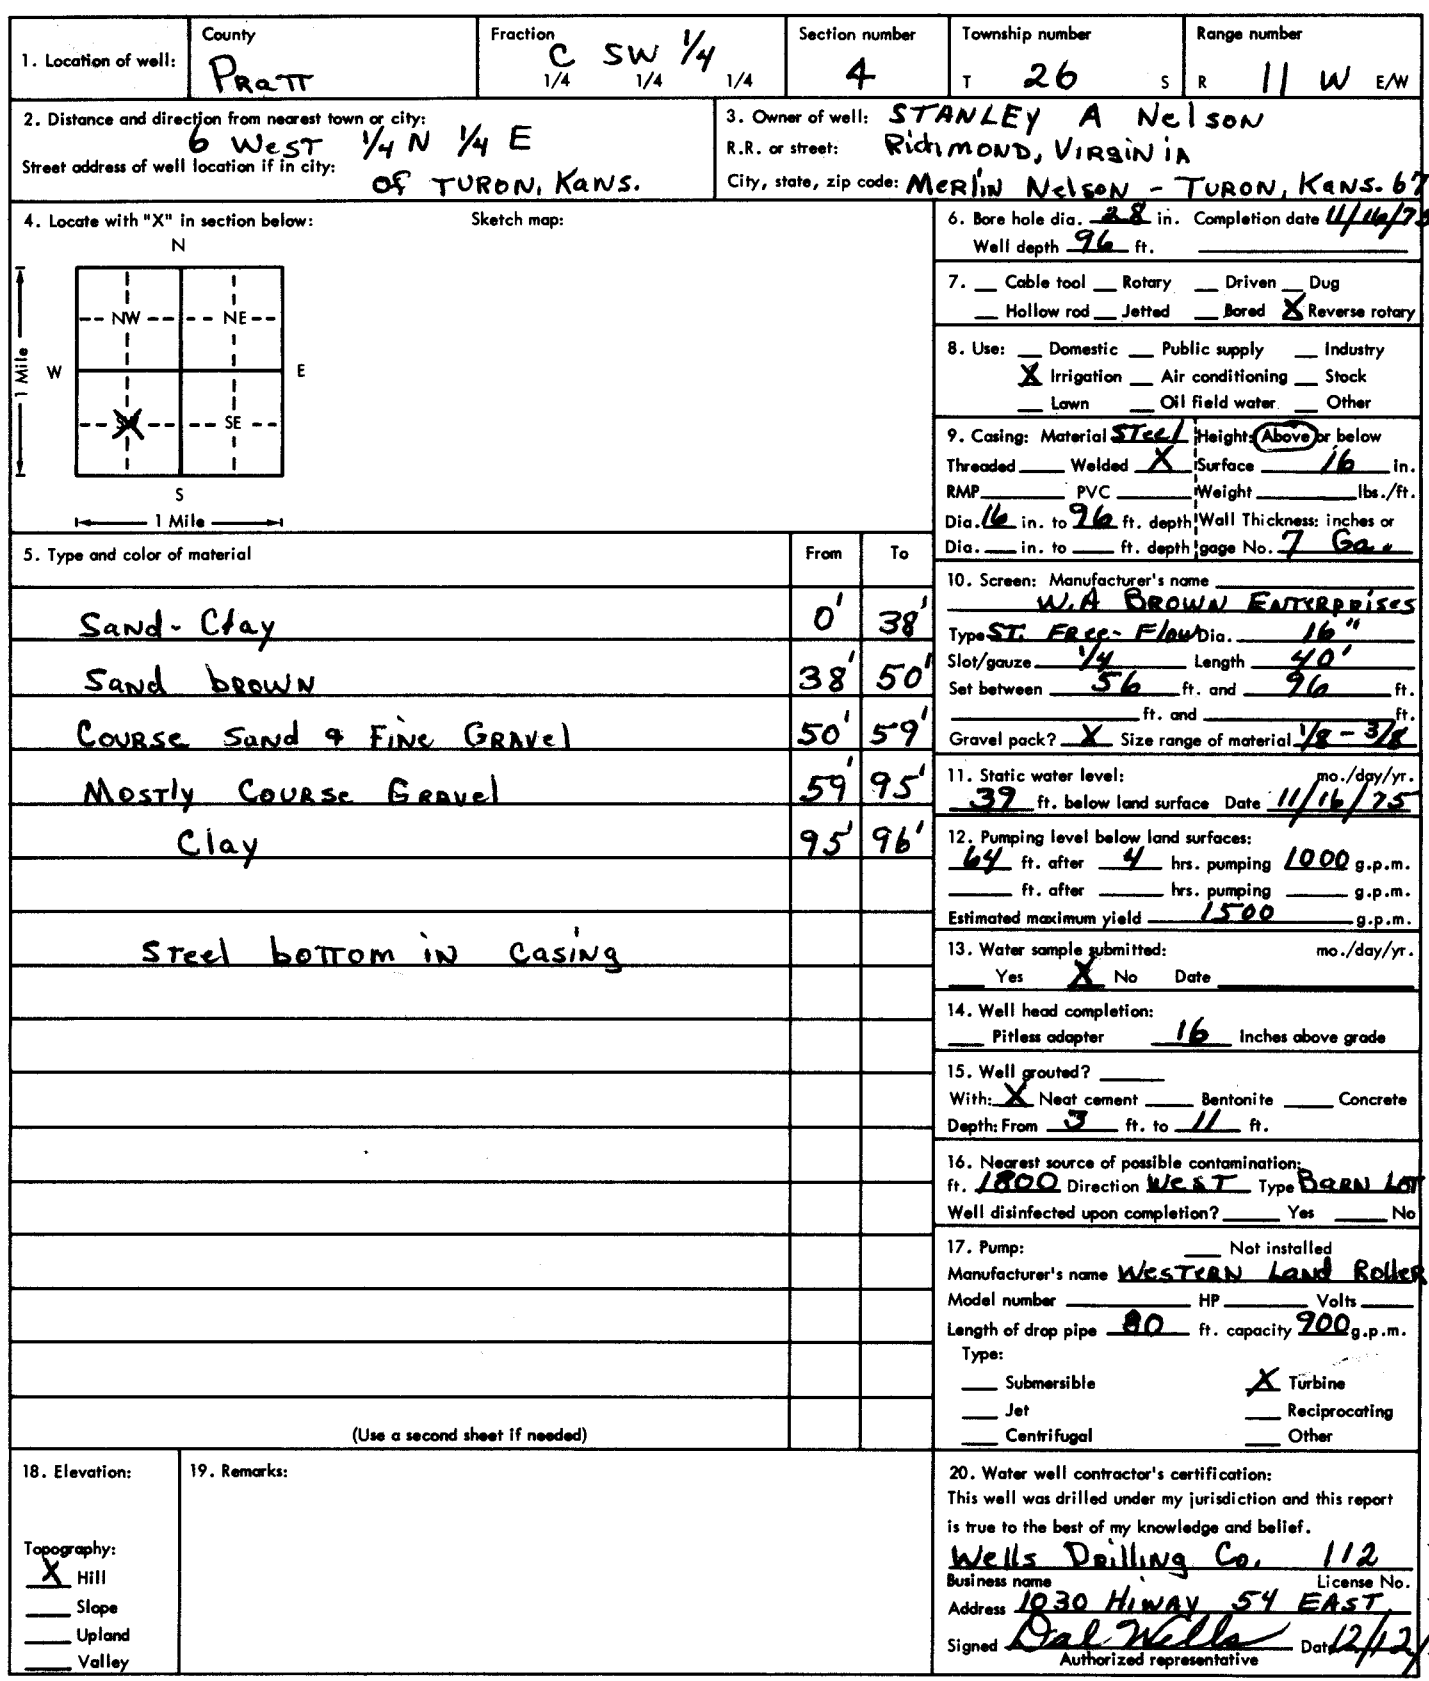 1. Location of well: County Pratt Fraction C SW 1/4 1/4 1/4 1/4 Section number 4 Township number T 26 S Range number R 11 W E/W
2. Distance and direction from nearest town or city:
6 West 1/4 N 1/4 E
Street address of well location if in city:
of Turon, Kans.
3. Owner of well: STANLEY A Nelson
R.R. or street: Richmond, Virginia
City, state, zip code: Merlin Nelson - Turon, Kans. 67
4. Locate with "X" in section below:
Sketch map:
N
NW NE
W E
1 Mile
SE
S
1 Mile
5. Type and color of material From To
Sand - Clay 0' 38'
Sand brown 38' 50'
Course Sand & Fine Gravel 50' 59'
Mostly Course Gravel 59' 95'
Clay 95' 96'
Steel bottom in casing
(Use a second sheet if needed)
6. Bore hole dia. 28 in. Completion date 11/16/75
Well depth 96 ft.
7. Cable tool Rotary Driven Dug
Hollow rod Jetted Bored X Reverse rotary
8. Use: Domestic Public supply Industry
X Irrigation Air conditioning Stock
Lawn Oil field water Other
9. Casing: Material Steel Height: Above or below
Threaded Welded X Surface 16 in.
RMP PVC Weight lbs./ft.
Dia. 16 in. to 96 ft. depth Wall Thickness: inches or
Dia. in. to ft. depth gage No. 7 Ga.
10. Screen: Manufacturer's name
W.A Brown Enterprises
Type ST. Free-Flow Dia. 16"
Slot/gauze 1/4 Length 40'
Set between 56 ft. and 96 ft.
ft. and ft.
Gravel pack? X Size range of material 1/8 - 3/8
11. Static water level: mo./day/yr.
39 ft. below land surface Date 11/16/75
12. Pumping level below land surfaces:
64 ft. after 4 hrs. pumping 1000 g.p.m.
ft. after hrs. pumping g.p.m.
Estimated maximum yield 1500 g.p.m.
13. Water sample submitted: mo./day/yr.
Yes X No Date
14. Well head completion:
Pitless adapter 16 Inches above grade
15. Well grouted?
With: X Neat cement Bentonite Concrete
Depth: From 3 ft. to 11 ft.
16. Nearest source of possible contamination:
ft. 1800 Direction West Type Barn Lot
Well disinfected upon completion? Yes No
17. Pump: Not installed
Manufacturer's name Western Land Roller
Model number HP Volts
Length of drop pipe 80 ft. capacity 900 g.p.m.
Type:
Submersible X Turbine
Jet Reciprocating
Centrifugal Other
18. Elevation:
Topography:
X Hill
Slope
Upland
Valley
19. Remarks:
20. Water well contractor's certification:
This well was drilled under my jurisdiction and this report
is true to the best of my knowledge and belief.
Wells Drilling Co. 112
Business name License No.
Address 1030 Hiway 54 EAST
Signed Dal Wells Date 12/12/
Authorized representative